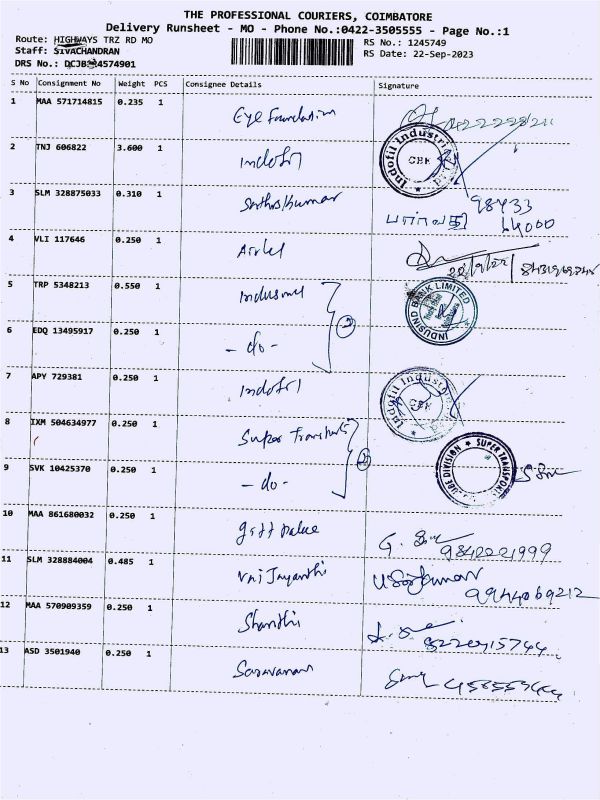 THE PROFESSIONAL COURIERS, COIMBATORE
Delivery Runsheet - MO - Phone No.:0422-3505555 - Page No.:1
Route: HIGHWAYS TRZ RD MO
RS No.: 1245749
Staff: SIVACHANDRAN
RS Date: 22-Sep-2023
DRS No.: 4574901
S No Consignment No Weight PCS Consignee Details Signature
1 MAA 571714815 0.235 1 Eye Foundation
2 TNJ 606822 3.600 1 Indofil
Indofil Industri
CBE
3 SLM 328875033 0.310 1 Santhoshkumar
98433
64000
4 VLI 117646 0.250 1 Airtel
5 TRP 5348213 0.550 1 Indusind
INDUSIND BANK LIMITED
6 EDQ 13495917 0.250 1 - do - 2
7 APY 729381 0.250 1 Indofil
Indofil Industri
CBE
8 IXM 504634977 0.250 1 Super Transports
SUPER TRANSPORT
UBE DIVISION
9 SVK 10425370 0.250 1 - do - 2
10 MAA 861680032 0.250 1 gift palace
9842221999
11 SLM 328884004 0.485 1 Jayanthi
9944069212
12 MAA 570909359 0.250 1 Shanthi
8220415744
13 ASD 3501940 0.250 1 Saravanan